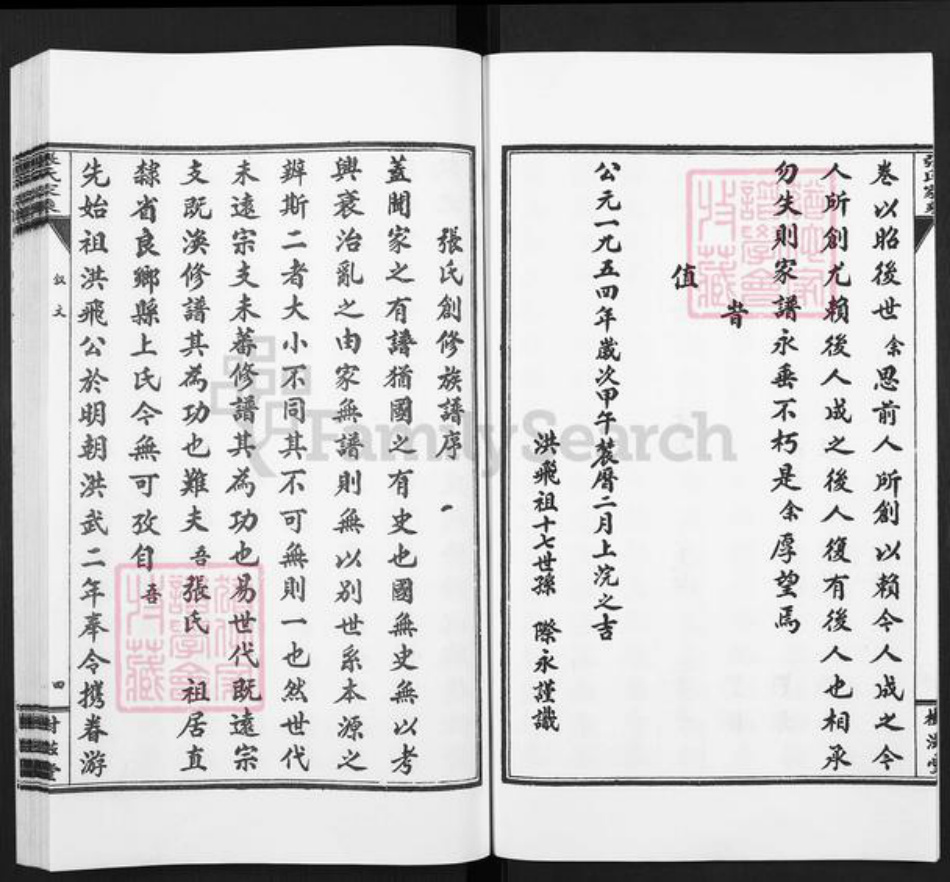 卷以昭後世余思前人所創以賴今人成之今
人所創尤賴後人成之後人復有後人也相承
勿失則家譜永垂不朽是余厚望焉
昔
值
公元一九五四年歲次甲午蒖曆二月上浣之吉
洪飛祖十七世孫 際永謹識
張氏創修族譜序
蓋聞家之有譜猶國之有史也國無史無以考
興衰治亂之由家無譜則無以別世系本源之
辨斯二者大小不同其不可無則一也然世代
未遠宗支未蕃修譜其為功也易世代既遠宗
支既渙修譜其為功也難夫吾張氏 祖居直
隸省良鄉縣上氏今無可攷自吾
先始祖洪飛公於明朝洪武二年奉令攜眷游
張氏家乘
叙文
四
FamilySearch